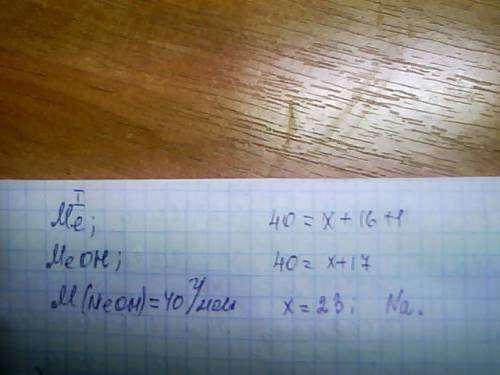 Me I; 40 = x + 16 + 1
MeOH; 40 = x + 17
M(MeOH) = 40 г/моль x = 23; Na.